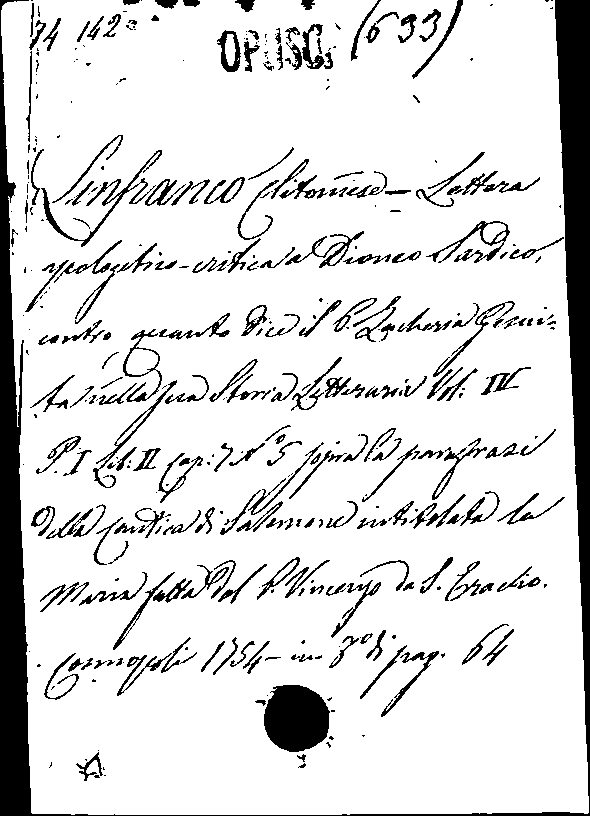 34 142
OPUSC. (633)
Linfranco Clitoniese – Lettera
apologetico-critica a Dioneo Sardico,
contro quanto dice il P. Zacheria Gesui-
ta nella sua Storia Letteraria Vol: IV
P. I Lib: II Cap: 7 N° 5 sopra la parafrasi
della Cantica di Salomone intitolata la
Maria fatta dal P. Vincenzo da S. Eraclio.
Cosmopoli 1754 – in 8° di pag. 64